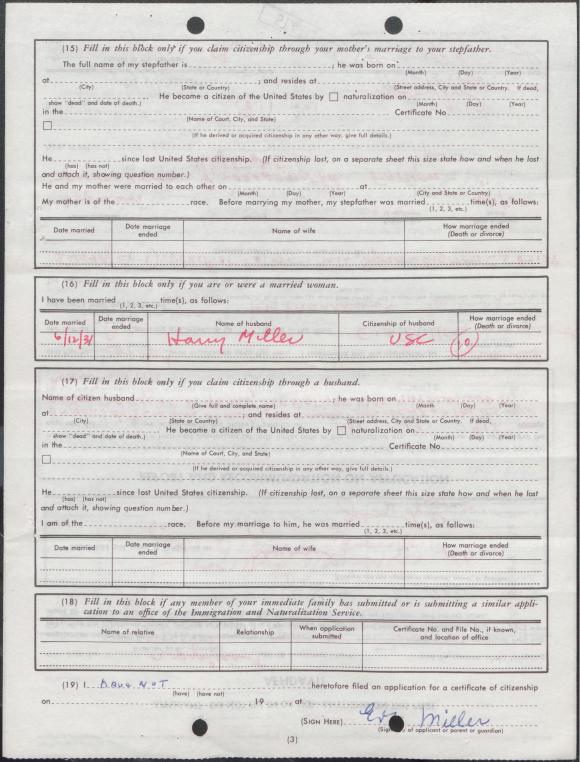 (15) Fill in this block only if you claim citizenship through your mother's marriage to your stepfather.
The full name of my stepfather is ; he was born on
(Month) (Day) (Year)
at ; and resides at
(City) (State or Country) (Street address, City and State or Country. If dead,
show "dead" and date of death.) He became a citizen of the United States by naturalization on
(Month) (Day) (Year)
in the Certificate No.
(Name of Court, City, and State)
(If he derived or acquired citizenship in any other way, give full details.)
He since lost United States citizenship. (If citizenship lost, on a separate sheet this size state how and when he lost
(has) (has not)
and attach it, showing question number.)
He and my mother were married to each other on at
(Month) (Day) (Year) (City and State or Country)
My mother is of the race. Before marrying my mother, my stepfather was married time(s), as follows:
(1, 2, 3, etc.)
Date married Date marriage ended Name of wife How marriage ended (Death or divorce)
(16) Fill in this block only if you are or were a married woman.
I have been married time(s), as follows:
(1, 2, 3, etc.)
Date married Date marriage ended Name of husband Citizenship of husband How marriage ended (Death or divorce)
6/12/31 Harry Miller USC
(17) Fill in this block only if you claim citizenship through a husband.
Name of citizen husband ; he was born on
(Give full and complete name) (Month (Day) (Year)
at ; and resides at
(City) (State or Country) (Street address, City and State or Country. If dead,
show "dead" and date of death.) He became a citizen of the United States by naturalization on
(Month) (Day) (Year)
in the Certificate No.
(Name of Court, City, and State)
(If he derived or acquired citizenship in any other way, give full details.)
He since lost United States citizenship. (If citizenship lost, on a separate sheet this size state how and when he lost
(has) (has not)
and attach it, showing question number.)
I am of the race. Before my marriage to him, he was married time(s), as follows:
(1, 2, 3, etc.)
Date married Date marriage ended Name of wife How marriage ended (Death or divorce)
(18) Fill in this block if any member of your immediate family has submitted or is submitting a similar appli-
cation to an office of the Immigration and Naturalization Service.
Name of relative Relationship When application submitted Certificate No. and File No., if known, and location of office
(19) I Have NOT heretofore filed an application for a certificate of citizenship
(have) (have not)
on 19 at
(SIGN HERE) Eva Miller
of applicant or parent or guardian)
(3)